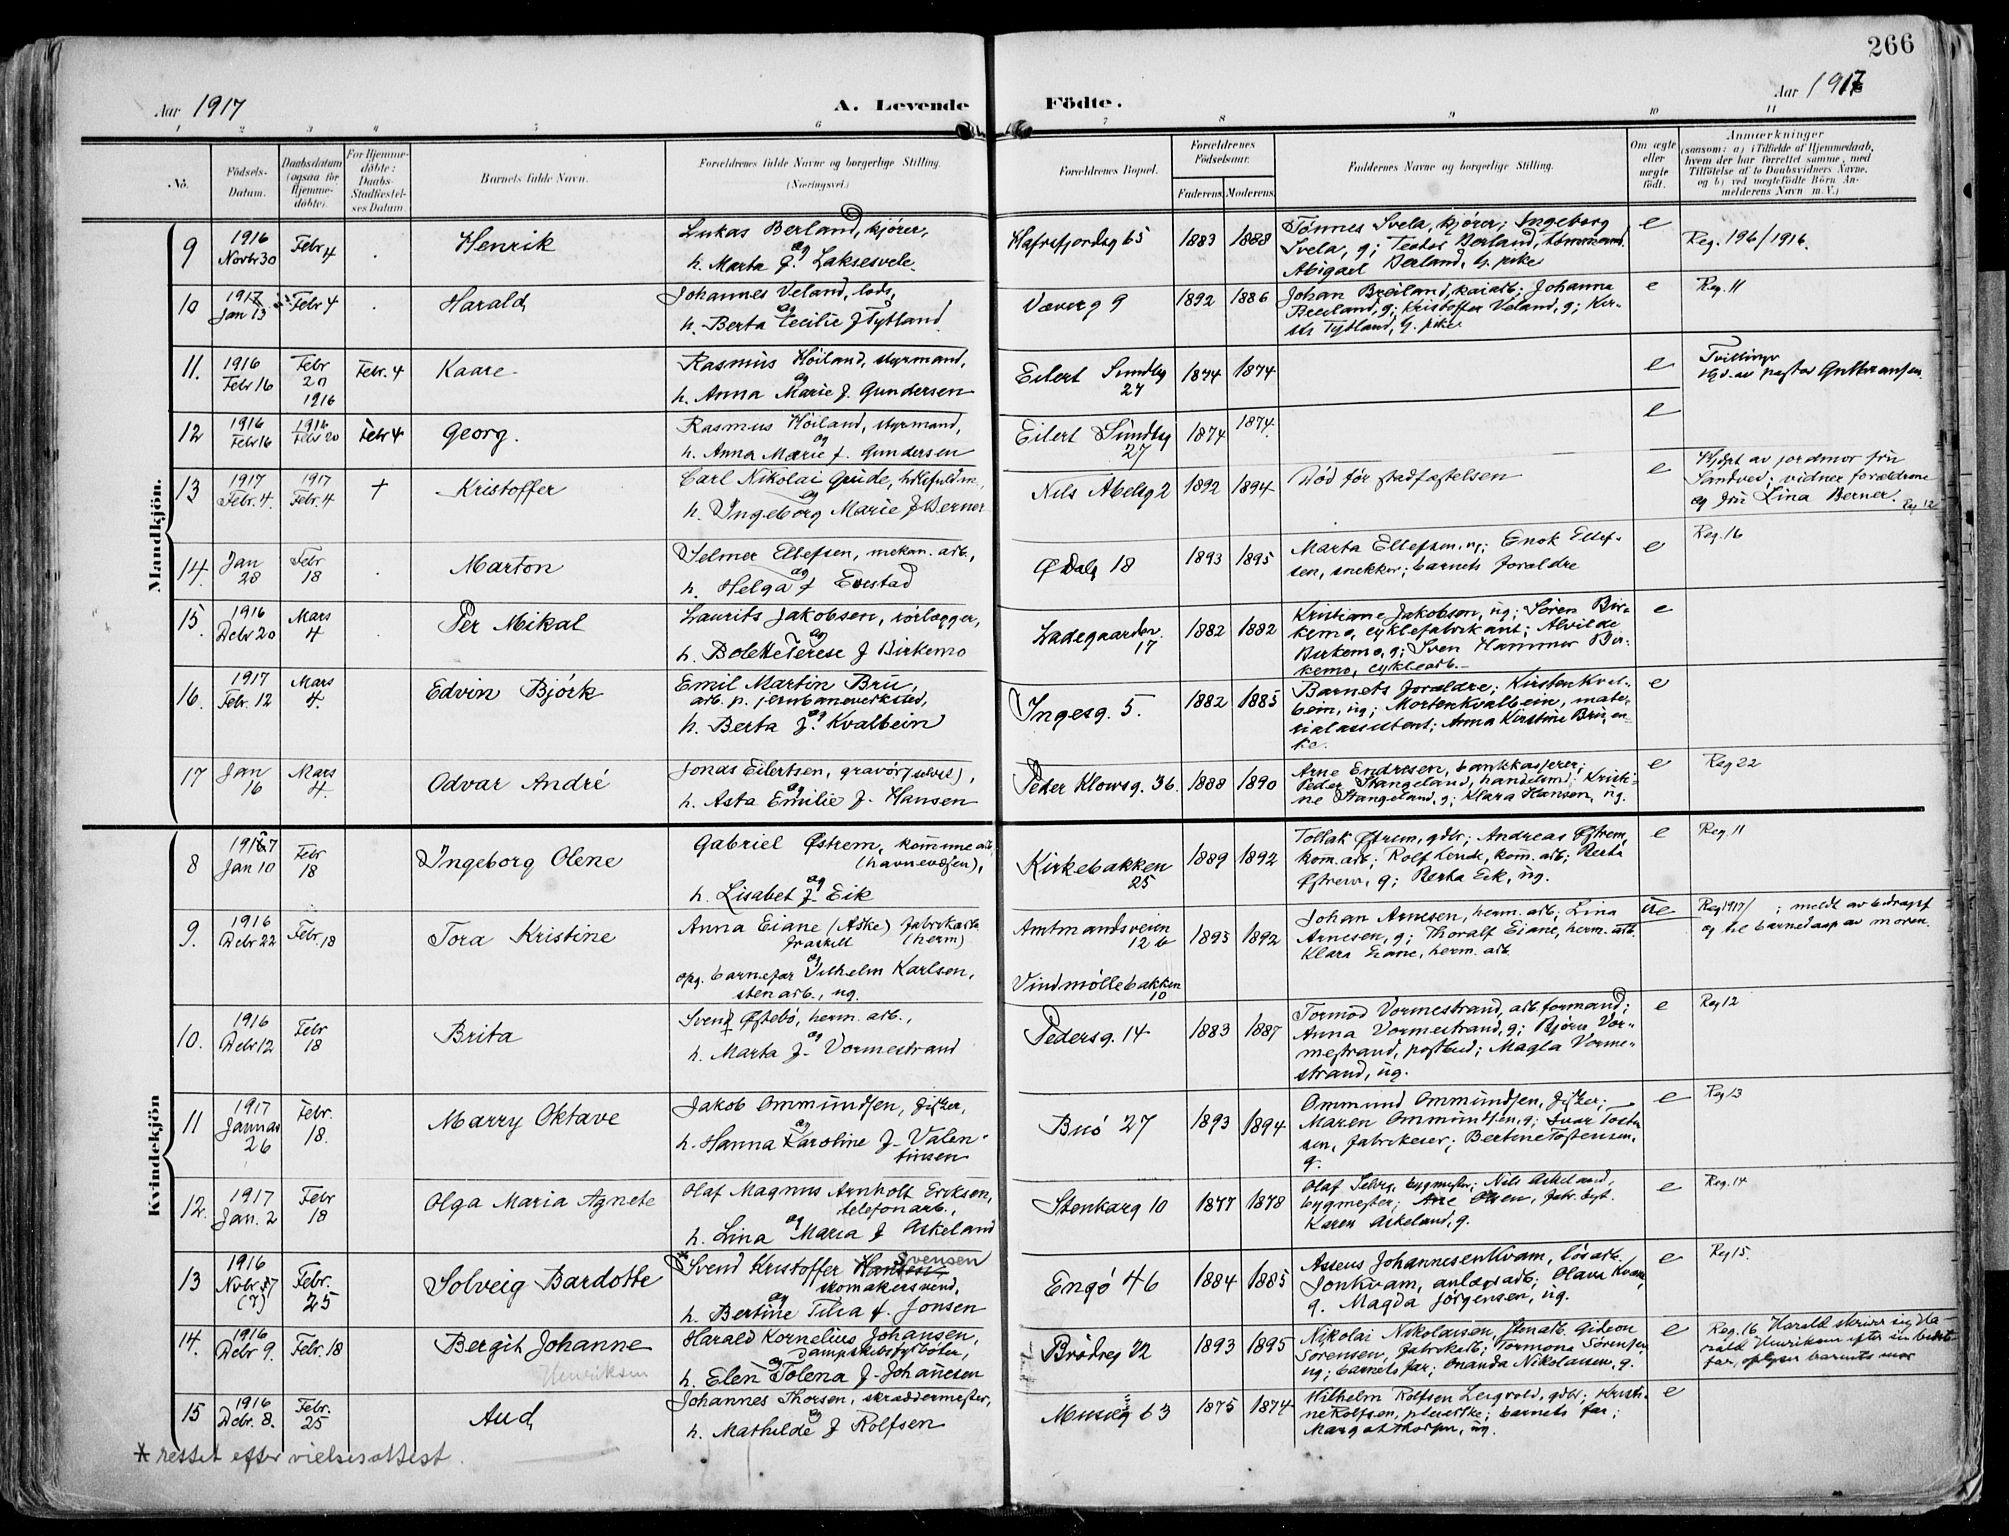 266
Aar 1917
A. Levende
Födte.
Aar 1917
1 2 3 4 5 6 7 8 9 10 11
No.
Födsels-
Datum.
Daabsdatum
(ogsaa for
Hjemme-
döbte).
For Hjemme-
döbte:
Daabs-
Stadfæstel-
ses Datum.
Barnets fulde Navn.
Forældrenes fulde Navne og borgerlige Stilling.
(Næringsvei.)
Forældrenes Bopæl.
Forældrenes
Födselsaar.
Faderens. Moderens.
Faddernes Navne og borgerlige Stilling.
Om ægte
eller
uægte
födt.
Anmærkninger
(saasom: a) i Tilfælde af Hjemmedaab,
hvem der har forrettet samme, med
Tilföielse af to Daabsvidners Navne,
og b) ved uægtefödte Börn An-
melderens Navn m. V.)
Mandkjön.
9
1916
Novbr 30
Febr 4
Henrik
Lukas Berland, kjører,
og
h. Marta J. Laksesvele
Hafrsfjordsg 65
1883 1888
Tønnes Svela, kjører; Ingeborg
Svela, g; Teodor Berland, tømmermd.
Abigael Berland, h. pike
e
Reg. 196/1916.
10
1917
Jan 13
Febr 4
Harald
Johannes Veland, lods,
og
h. Berta Cecilie J Tytland
Væverg 9
1892 1886
Johan Breiland, kaiarb; Johanna
Breiland, g; Kristoffer Veland, g; Kir-
sti Tytland, h. pike
e
Reg. 11
11.
1916
Febr 16
Febr
20
1916
Febr. 4
Kaare
Rasmus Høiland, styrmand,
og
h. Anna Marie J. Gundersen
Eilert Sundtsg
27
1874 1874
e
Tvillinger
12
1916
Febr 16
1916
Febr 20
Febr 4
Georg.
Rasmus Høiland, styrmand,
og
h. Anna Marie f. Gundersen
Eilert Sundtsg
27
1874 1874.
e
13
1917
Febr. 4.
1917
Febr. 4
†
Kristoffer
Carl Nikolai Gude,
og
h. Ingeborg Marie J Berner
Nils Abelsg 2
1892 1894
Død før stadfæstelsen
e
Hjdpt av jordmor fru
Sandved; vidner forældrene
og fru Lina Berner. Reg 12
14.
Jan
28
Febr
18
Marton
Selmer Ellefsen, mekan. arb,
og
h. Helga f Evestad
Ø Dalg 18
1893 1895
Marta Ellefsen, ug; Enok Ellef-
sen, snekker; barnets forældre
e
Reg. 16
15.
1916
Debr 20
Mars
4
Per Mikal
Laurits Jakobsen, rørlægger,
og
h. Bolette Terese J Birkemo
Ladegaardsv.
17
1882 1882
Kristiane Jakobsen, ug; Søren Bir-
kemo, cyklefabrikant; Alvilde
Birkemo, g; Sven Hammer Bir-
kemo, cyklearb.
e
16.
1917
Febr. 12
Mars
4.
Edvin Bjórk
Emil Martin Bru,
arb. p. jernbaneverksted,
og
h. Berta J. Kvalbein
Ingesg. 5.
1882 1885
Barnets forældre; Kirsten Kval-
bein, ug; Morten Kvalbein, mate-
rialassistent; Anna Kirstine Bru, en-
ke.
e
17
Jan
16
Mars
4.
Odvar André
Jonas Eilertsen, gravør (selvst),
og
h. Asta Emilie J. Hansen
Peder Klowsg. 36.
1888 1890
Arne Endresen, bankkasserer;
Peder Stangeland, handelsmd; Kristi-
ne Stangeland, g; Klara Hansen, ug.
e
Reg 22
Kvindekjön
8
1917
Jan 10
Febr
18
Ingeborg Olene
Gabriel Østrem, kommunearb
(havnevæsen),
og
h. Lisabet J Eik
Kirkebakken
25
1889 1892
Tollak Østrem, gdbr; Andreas Østrem,
kom. arb; Rolf Lende, kom. arb; Berta
Østrem, g; Berta Eik, ug.
e
Reg. 11
9.
1916
Debr 22
Febr. 18
Tora Kristine
Anna Eiane (Aske) fabrikarb
fraskilt (herm)
og
opg. barnefar Vilhelm Karlsen,
stenarb., ug.
Amtmandsveien
12 b
Vindmøllebakken
10
1895 1892
Johan Arnesen, herm. arb; Lina
Arnesen, g; Thoralf Eiane, herm. arb.
Klara Eiane, herm. arb
ue
Reg 1917/ ; meldt av bidragsf
og til barnedaap av moren.
10.
1916
Debr 12
Febr
18
Brita
Svend Østebö, herm. arb.,
og
h. Marta J. Vormestrand
Pedersg. 14
1883 1887
Tormod Vormestrand, arb. formand;
Anna Vormestrand, g; Bjørn Vor-
mestrand, postbud; Magla Vorme-
strand, ug.
e
Reg 12
11
1917
Januar
26
Febr.
18.
Marry Oktave
Jakob Ommundsen, fisker,
og
h. Hanna Karoline J. Valen-
tinsen
Buö 27
1893 1894
Ommund Ommundsen, fisker;
Maren Ommundsen, g; Ivar Toste
sen, fabrikeier; Bertine Tostensen,
g.
e
Reg 13
12.
1917
Jan. 2
Febr
18
Olga Maria Agnete
Olaf Magnus Arnholt Eriksen,
telefonarb.,
og
h. Lina Maria J Askeland
Stenkarg 10
1877 1878
bygmester; Nils Askeland,
bygmester; Olsen,
Karen Askeland, g.
e
Reg. 14
13
1916
Novbr
(?)
Febr.
25
Solveig Bardotte
* Svend Kristoffer Hansen Svensen
skomakersvend,
og
h. Bertine Tilia f. Jonsen
Engö 46
1884 1885
Asseus Johannesen Kvam, løsarb.
Jon Kvam, anlægsarb; Olava Kvam,
g. Magda Jörgensen, ug.
e
Reg 15.
14.
1916
Debr 9.
Febr. 18
Bergit Johanne
Henriksen
Harald Kornelius Johansen,
dampskibsfyrböter,
og
h. Elen Tolena J. Johanesen
Brödreg 22
1893 1895
Nikolai Nikolaisen, stenarb. Gideon
Sörensen, fabrikarb; Tormona Sörensen,
ug; barnets far; Ananda Nikolaisen, g.
e
Reg. 16. Harald skriver sig Ha-
rald Henriksen efter sin bedste
far, oplyser barnets mor
15
1916
Debr. 8.
Febr.
25
Aud
Johannes Thorsen, skræddermester,
og
h. Mathilde J Rolfsen
Museeg 63
1875 1874
Wilhelm Rolfsen Leigvold, gdbr; Kristi-
ne Rolfsen, pleierske; barnets far;
Margot Thorsen, ug.
e
* rettet efter vielsesattest.